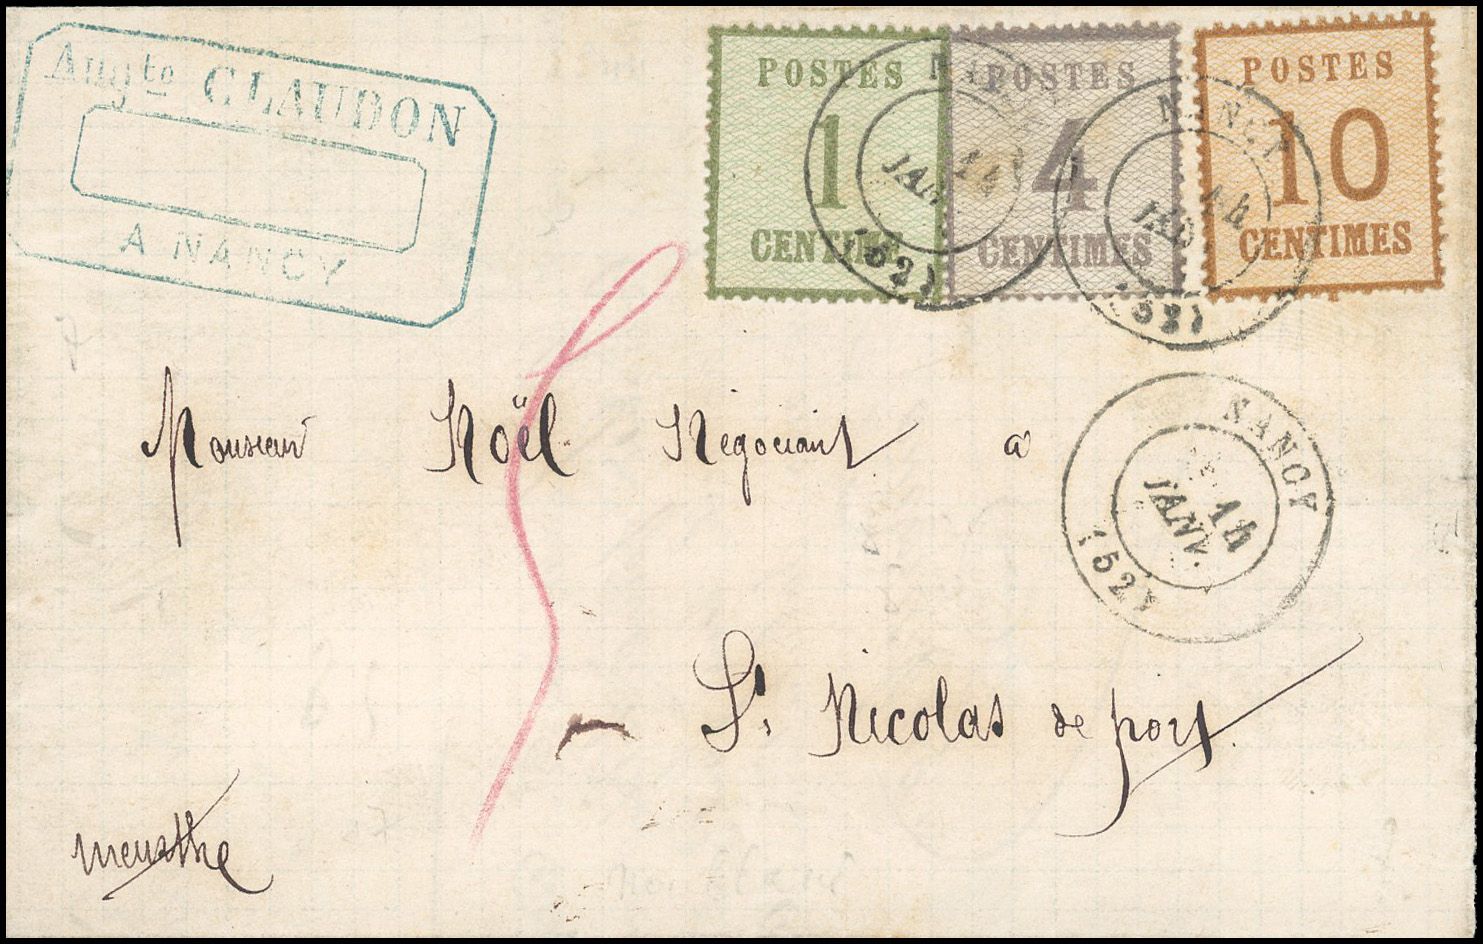 Augte CLAUDON
A NANCY
POSTES
1
CENTIME
POSTES
4
CENTIMES
POSTES
10
CENTIMES
NANCY
14
JANV.
(52)
NANCY
14
JANV.
(52)
NANCY
14
JANV.
(52)
Monsieur Noël Négociant a
St. Nicolas de port
meurthe